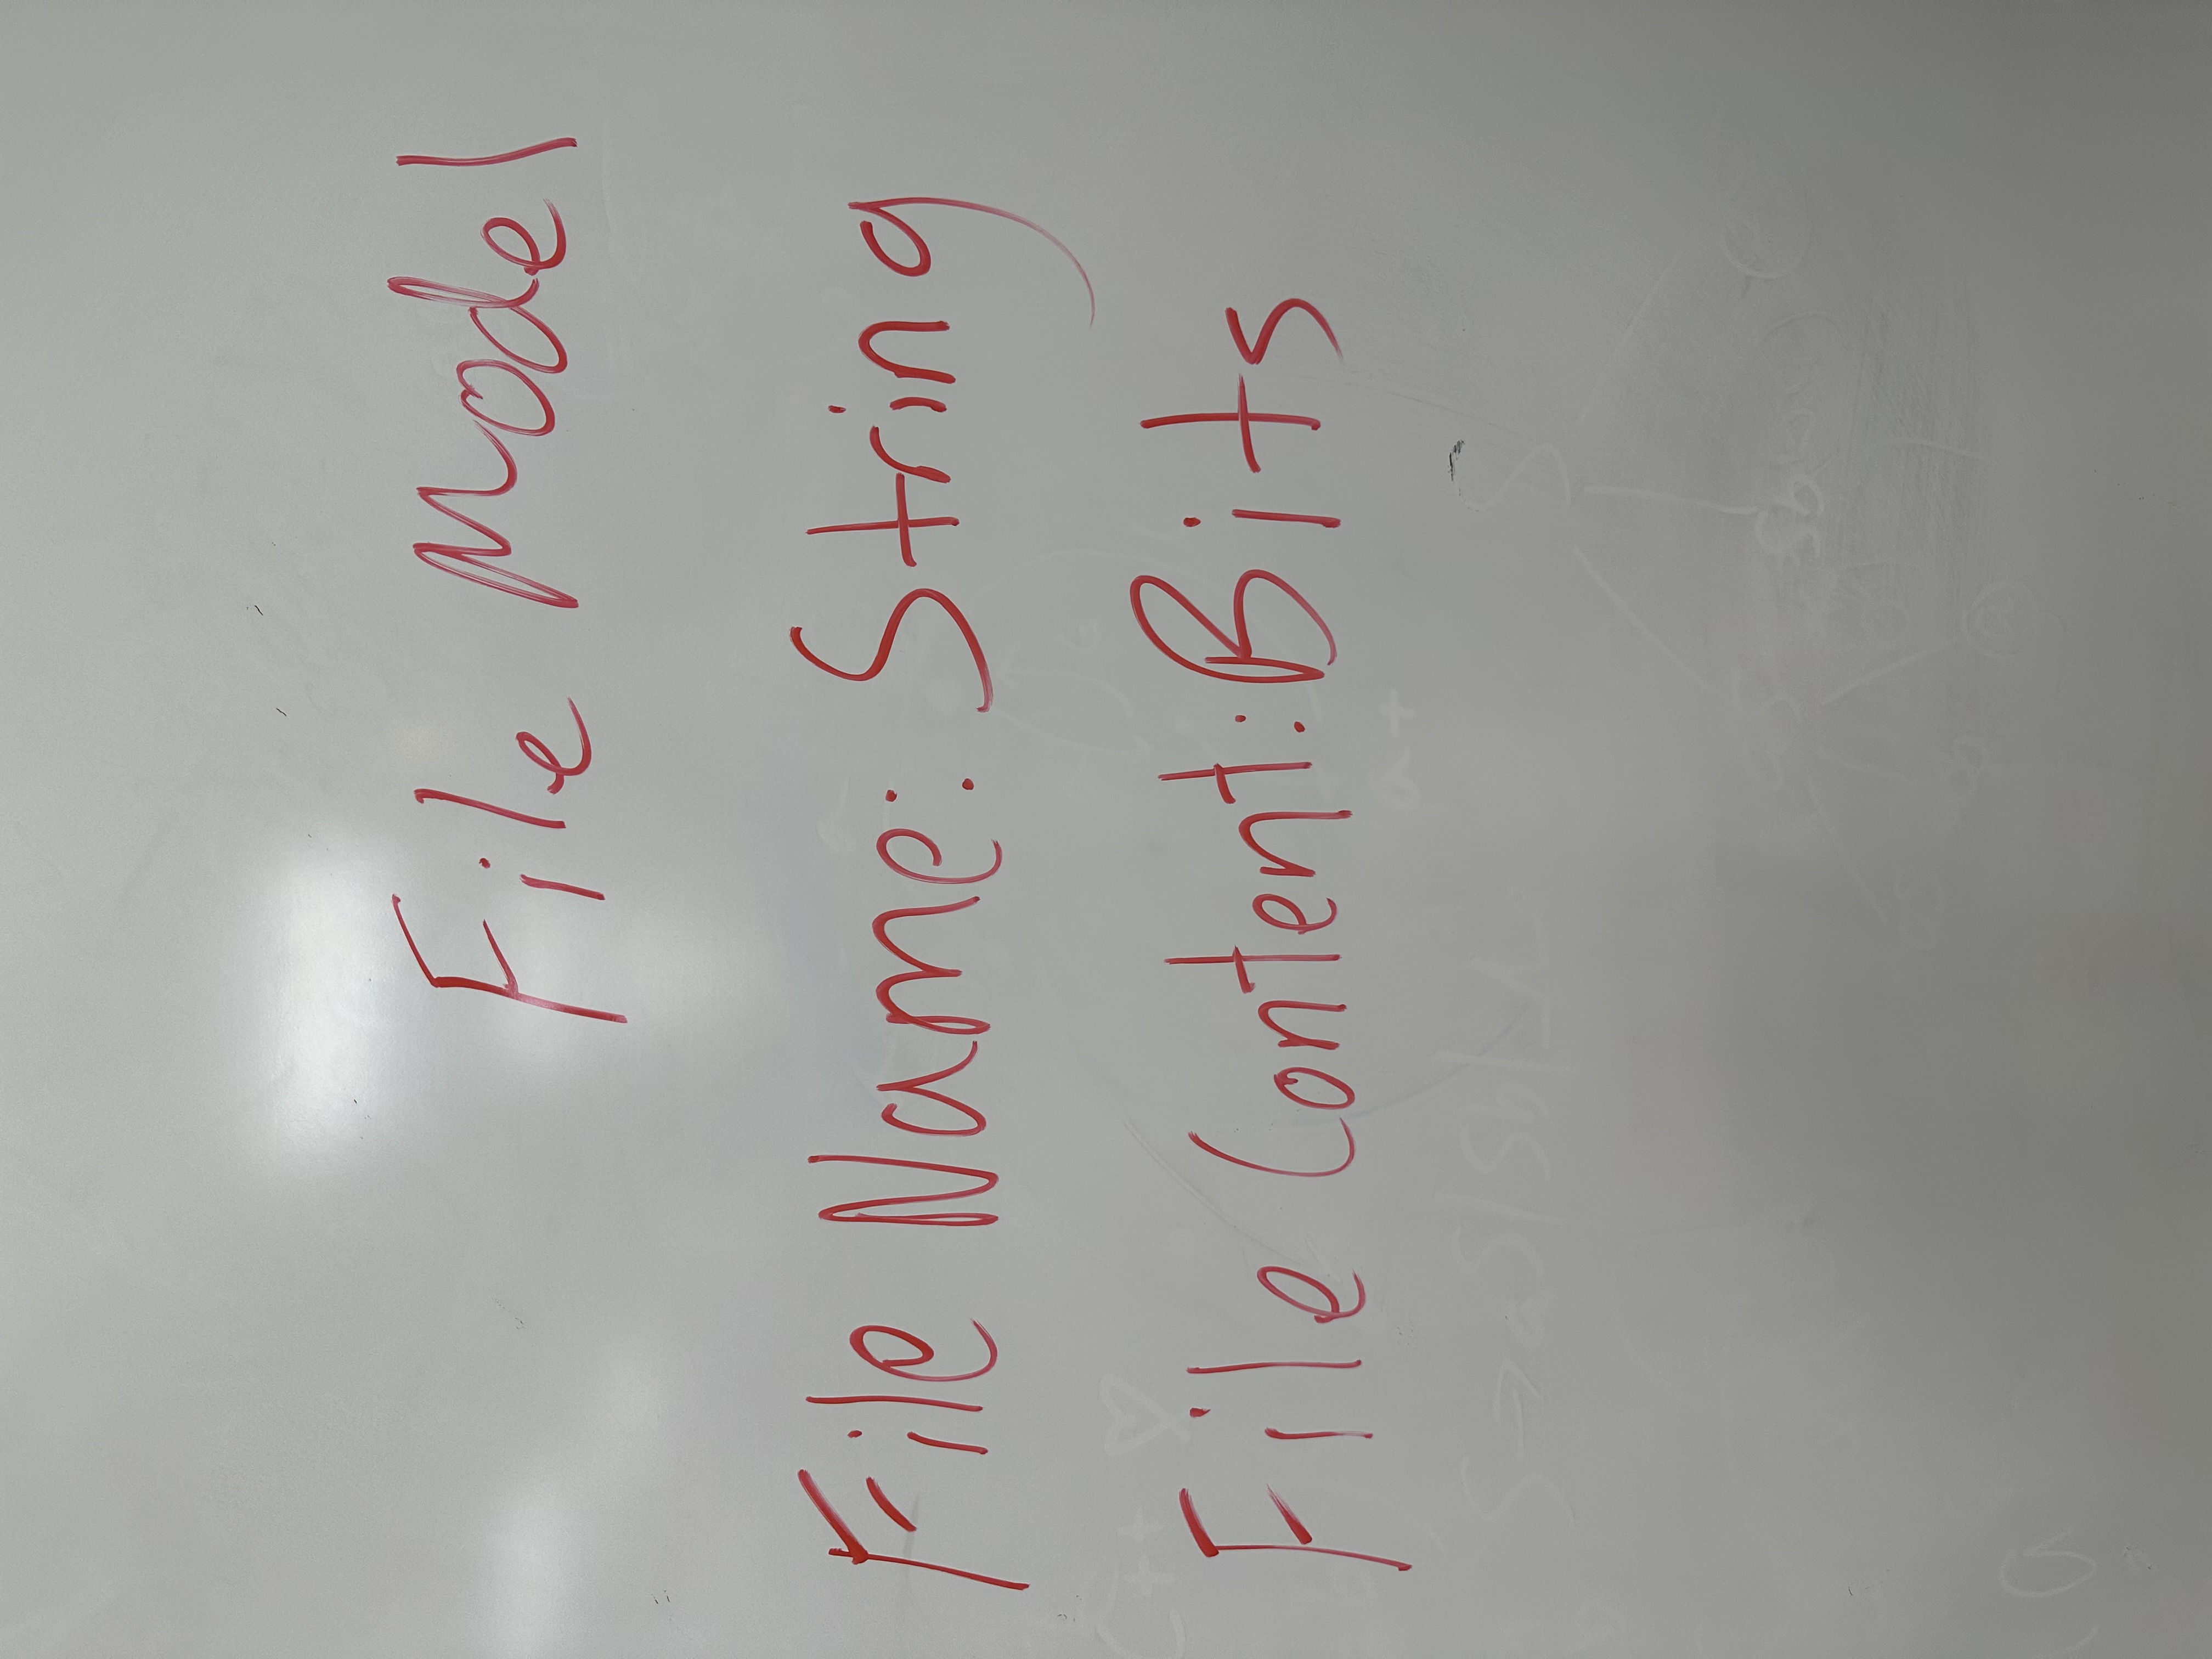 File Model
File Name: String
File Content: Bits
C++ ♡
a+
S → aS|Sb|
S